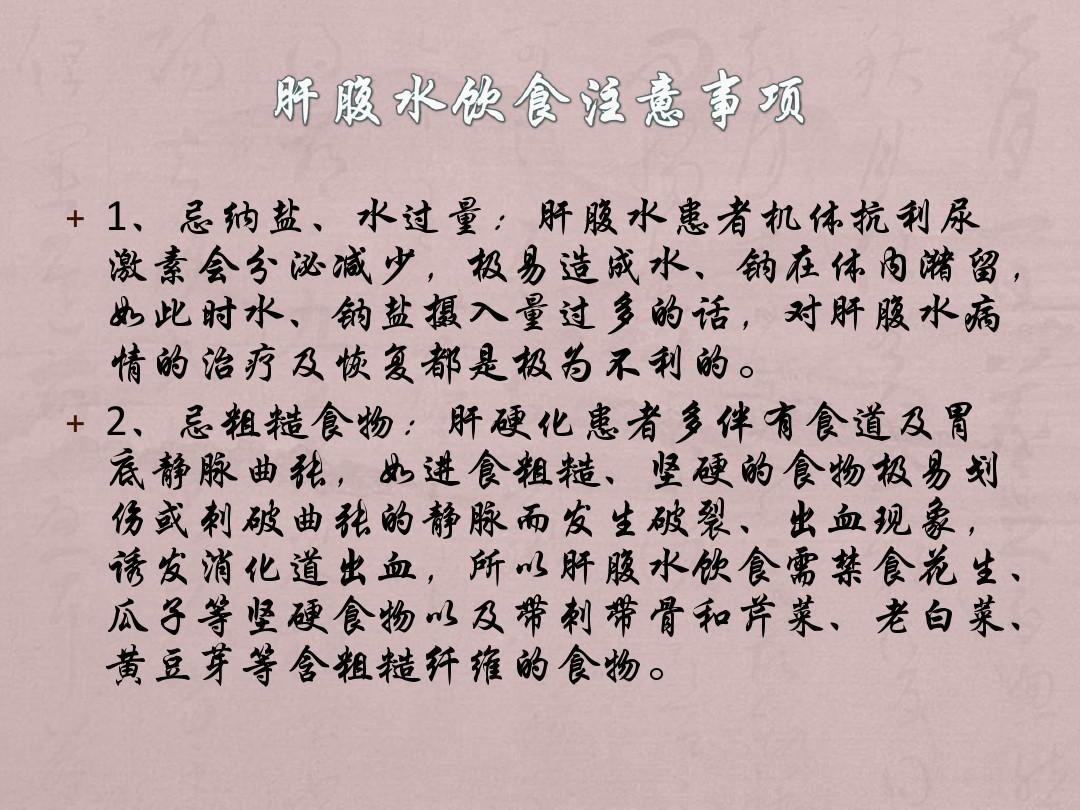 肝腹水饮食注意事项
+ 1、忌纳盐、水过量：肝腹水患者机体抗利尿
激素会分泌减少，极易造成水、钠在体内潴留，
如此时水、钠盐摄入量过多的话，对肝腹水病
情的治疗及恢复都是极为不利的。
+ 2、忌粗糙食物：肝硬化患者多伴有食道及胃
底静脉曲张，如进食粗糙、坚硬的食物极易划
伤或刺破曲张的静脉而发生破裂、出血现象，
诱发消化道出血，所以肝腹水饮食需禁食花生、
瓜子等坚硬食物以及带刺带骨和芹菜、老白菜、
黄豆芽等含粗糙纤维的食物。